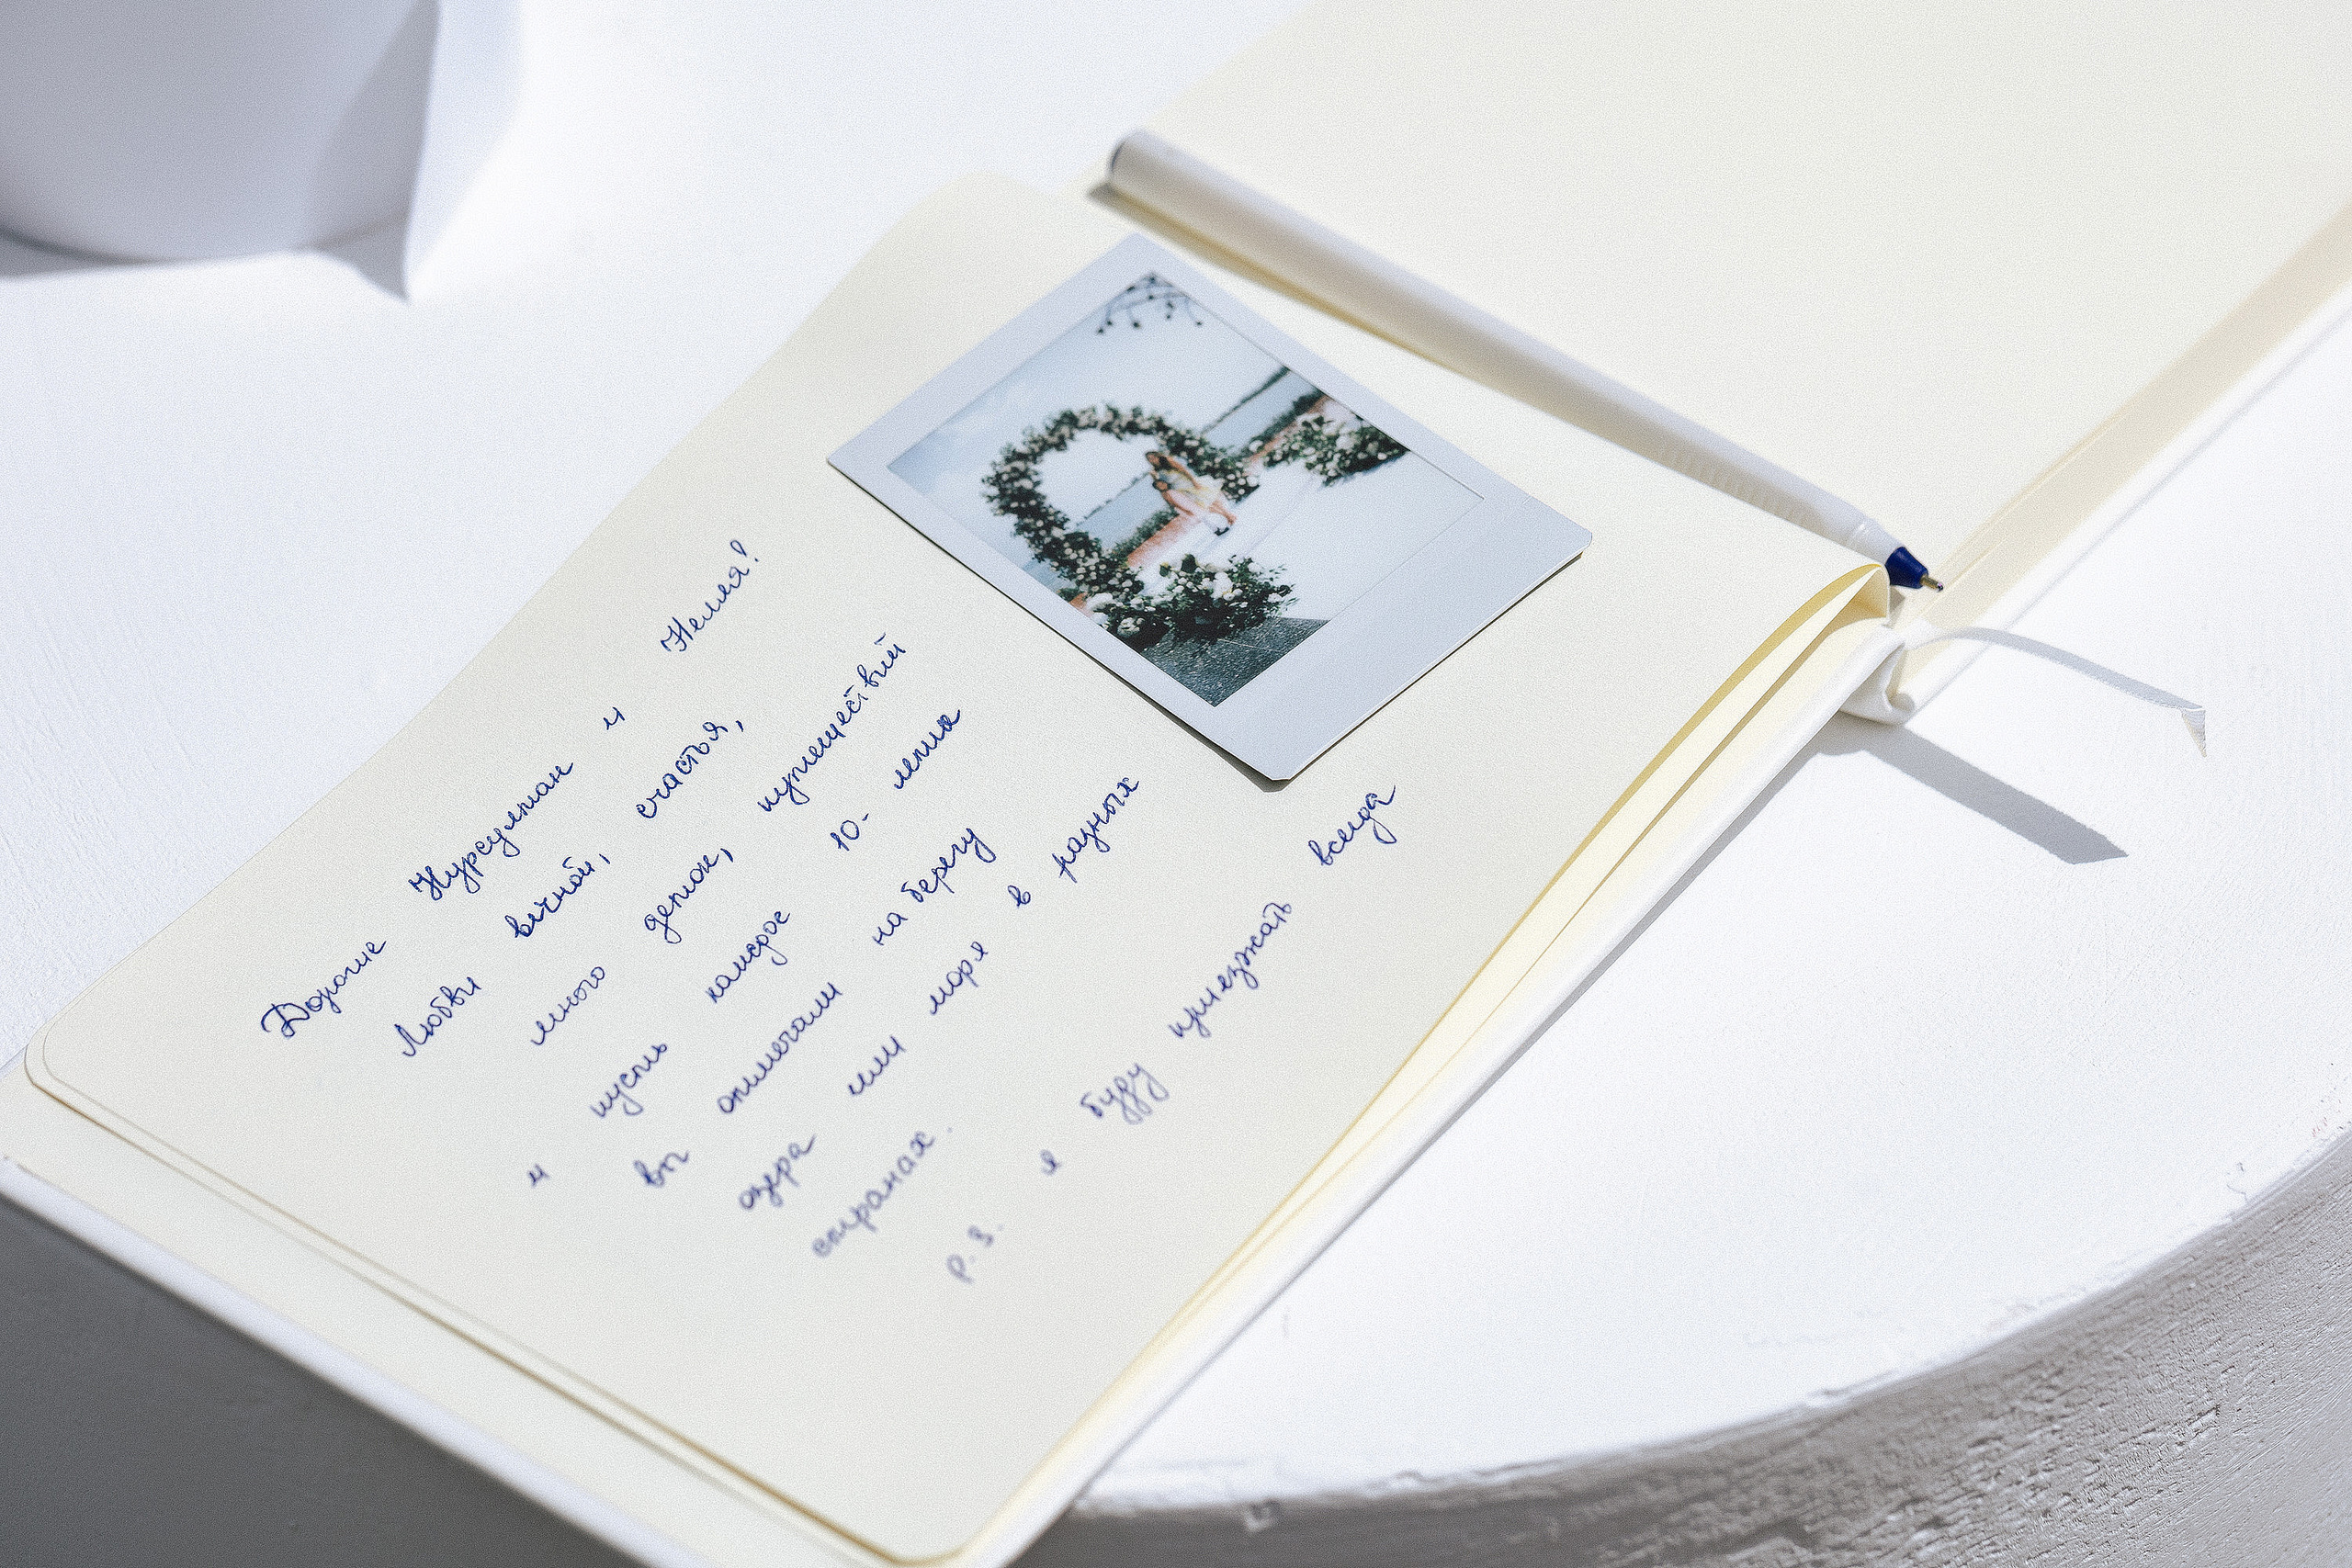 Дорогие Нурсултан и Нелля!
Любви вечной, счастья,
много деток, путешествий
и пусть каждое 10-летие
вы отмечали на берегу
озера или моря в разных
странах.
P.З. я буду приезжать всегда